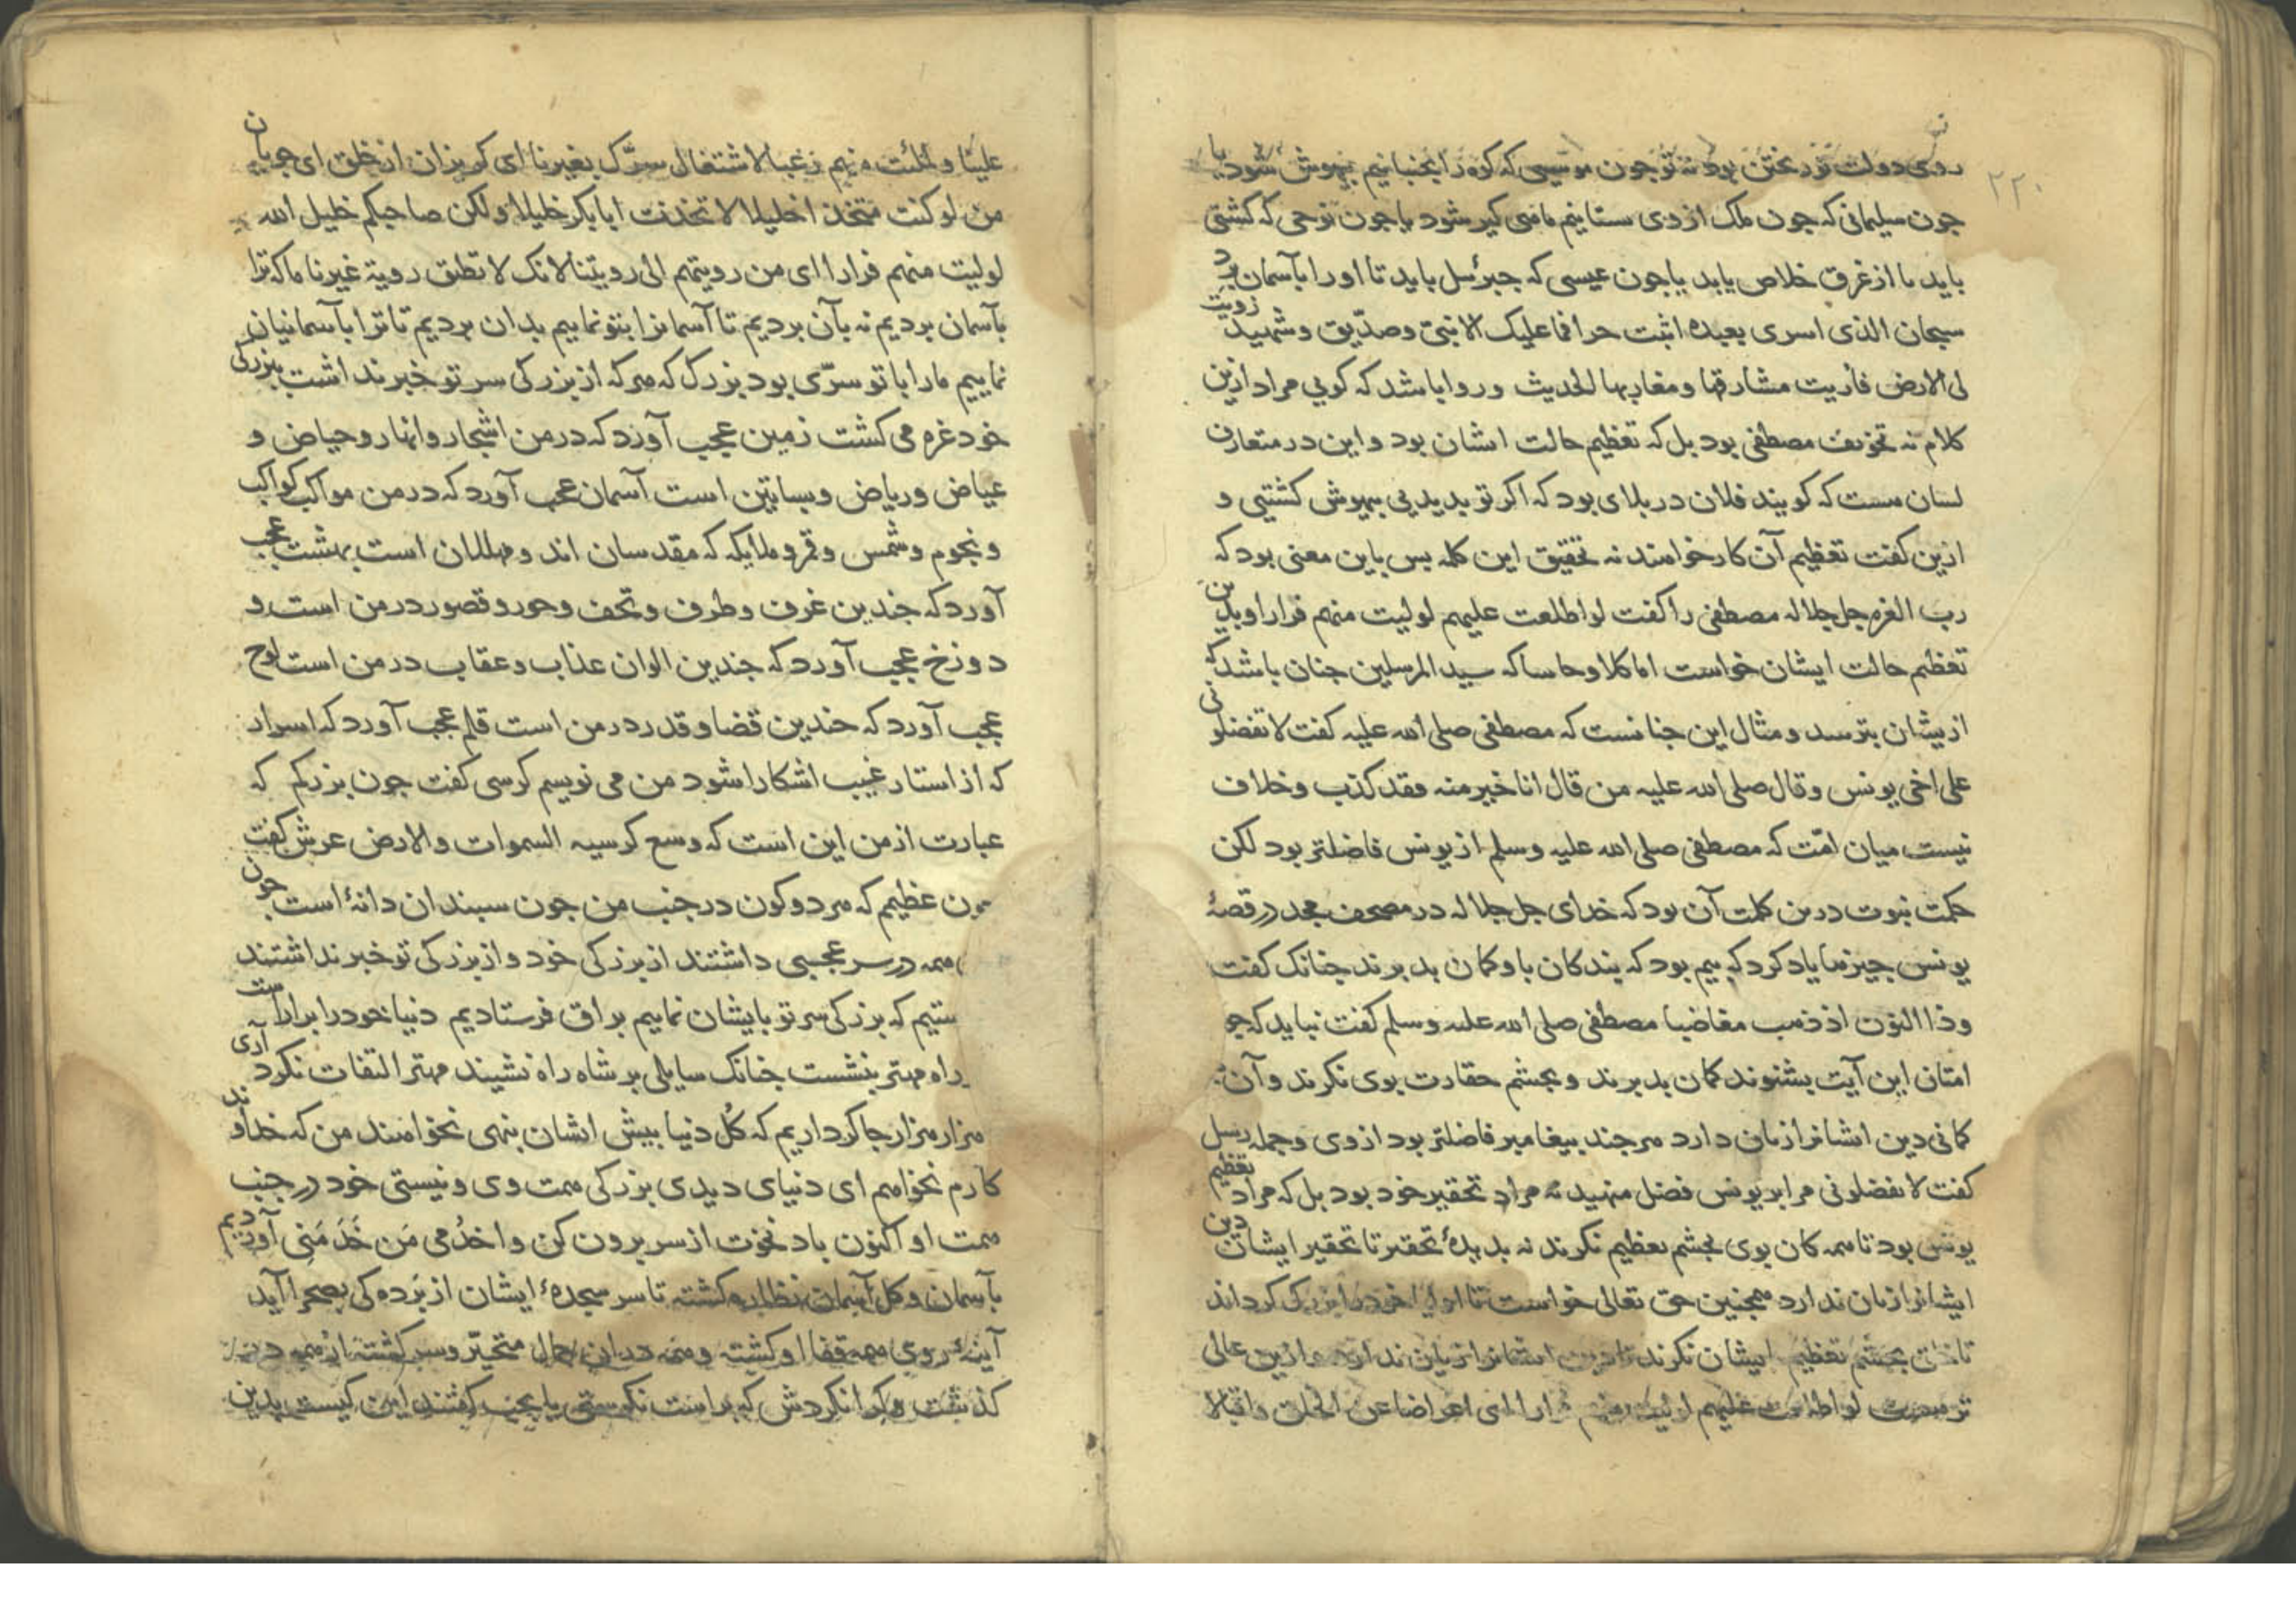 ۲۲۰
روی دولت تو رختن بود نه تو جون موسی که کوه را بجنبانیم بیهوش شود یا
جون سلیمانی که جون ملک از وی ستانیم ماهی کیر شود یا جون نوحی که کشتی
باید تا از غرق خلاص یابد یا جون عیسی که جبرئیل باید تا او را بآسمان برد
سبحان الذی اسری بعبده اثبت حرا فما علیک الا نبی وصدّیق وشهید زویت
لی الارض فاریت مشارقها ومغاربها الحدیث و روا باشد که کویی مراد ازین
کلام نه تخویف مصطفی بود بل که تعظیم حالت ایشان بود و این در متعارف
لسان هست که کویند فلان در بلای بود که اکر تو بدیدیی بیهوش کشتیی و
ازین کفت تعظیم آن کار خواهند نه تحقیق این کلمه بس باین معنی بود که
رب العزه جل جلاله مصطفی را کفت لو اطلعت علیهم لولیت منهم فرارا و بدین
تعظیم حالت ایشان خواست اما کلا و حاشا که سید المرسلین جنان باشد که
ازیشان بترسد و مثال این جنانست که مصطفی صلی الله علیه کفت لا تفضلونی
علی اخی یونس وقال صلی الله علیه من قال انا خیر منه فقد کذب وخلاف
نیست میان امّت که مصطفی صلی الله علیه وسلم از یونس فاضلتر بود لکن
حکمت نبوت درین کلمت آن بود که خدای جل جلاله در مصحف مجد در قصهٔ
یونس جیزها یاد کرد که بیم بود که بندکان باو کمان بد برند جنانک کفت
وذا النون اذ ذهب مغاضبا مصطفی صلی الله علیه وسلم کفت نباید که جو
امتان این آیت بشنوند کمان بد برند و بجشم حقارت بوی نکرند و آن
کمانی دین ایشانرا زیان دارد هر جند بیغامبر فاضلتر بود از وی و جمله رسل
کفت لا تفضلونی مرا بر یونس فضل منهید نه مراد تحقیر خود بود بل که مراد تعظیم
یونس بود تا همه کان بوی بجشم تعظیم نکرند نه بدیدهٔ تحقیر تا تحقیر ایشان دین
ایشانرا زیان ندارد همجنین حق تعالی خواست تا اولیا خود را بزرک کرداند
تا خلق بجشم تعظیم ایشان نکرند تا دین ایشانرا زیان ندارد و ازین عالی
تر هست لو اطلعت علیهم لولیت منهم فرارا ای اعراضا عن الخلق واقبالا
علینا و لملئت منهم رغبا لاشتغال سرّک بغیرنا ای کریزان از خلق ای جویان
من لو کنت متخذا خلیلا لاتخذت ابا بکر خلیلا ولکن صاحبکم خلیل الله
لولیت منهم فرارا ای من رویتهم الی رویتنا لانک لا تطیق رویة غیرنا ما که ترا
بآسمان بردیم نه بآن بردیم تا آسمانرا بتو نماییم بدان بردیم تا ترا بآسمانیان
نماییم ما را با تو سرّی بود بزرک که هر که از بزرکی سر تو خبر نداشت ببزرکی
خود غره می کشت زمین عجب آورد که در من اشجار وانهار وحیاض و
غیاض وریاض وبساتین است آسمان عجب آورد که در من مواکب کواکب
ونجوم وشمس وقمر وملایکه که مقدسان اند ومهللان است بهشت عجب
آورد که جندین غرف وطرف وتحف وحور وقصور در من است و
دوزخ عجب آورد که جندین الوان عذاب وعقاب در من است لوح
عجب آورد که جندین قضا وقدر در من است قلم عجب آورد که اسرار
که از استار غیب اشکارا شود من می نویسم کرسی کفت جون بزرکم که
عبارت از من این است که وسع کرسیه السموات والارض عرش کفت
جون عظیم که هر دو کون در جنب من جون سبندان دانهٔ است جون
همه در سر عجبی داشتند از بزرکی خود و از بزرکی تو خبر نداشتند
ستیم که بزرکی سر تو بایشان نماییم براق فرستادیم دنیا خود را براراست
راه مهتر بنشست جنانک سایلی بر شاه راه نشیند مهتر التفات نکرد آری
هزار هزار جاکر داریم که کُل دنیا بیش ایشان بنهی نخواهند من که خداوند
کارم نخواهم ای دنیای دیدی بزرکی همت وی و نیستی خود در جنب
همت او اکنون باد نخوت از سر برون کن و اخدُمی مَن خَدَمَنی آوردیم
بآسمان وکل آسمان نظاره کشته تا سر سجدهٔ ایشان از برده کی بصحرا آید
آینهٔ روی همه قفا او کشته و همه دران جمال متحیّر وسر کشته از همه در
کذشت و کرانکردش که براست نکرستی یا بجب کفتند این کیست بدین